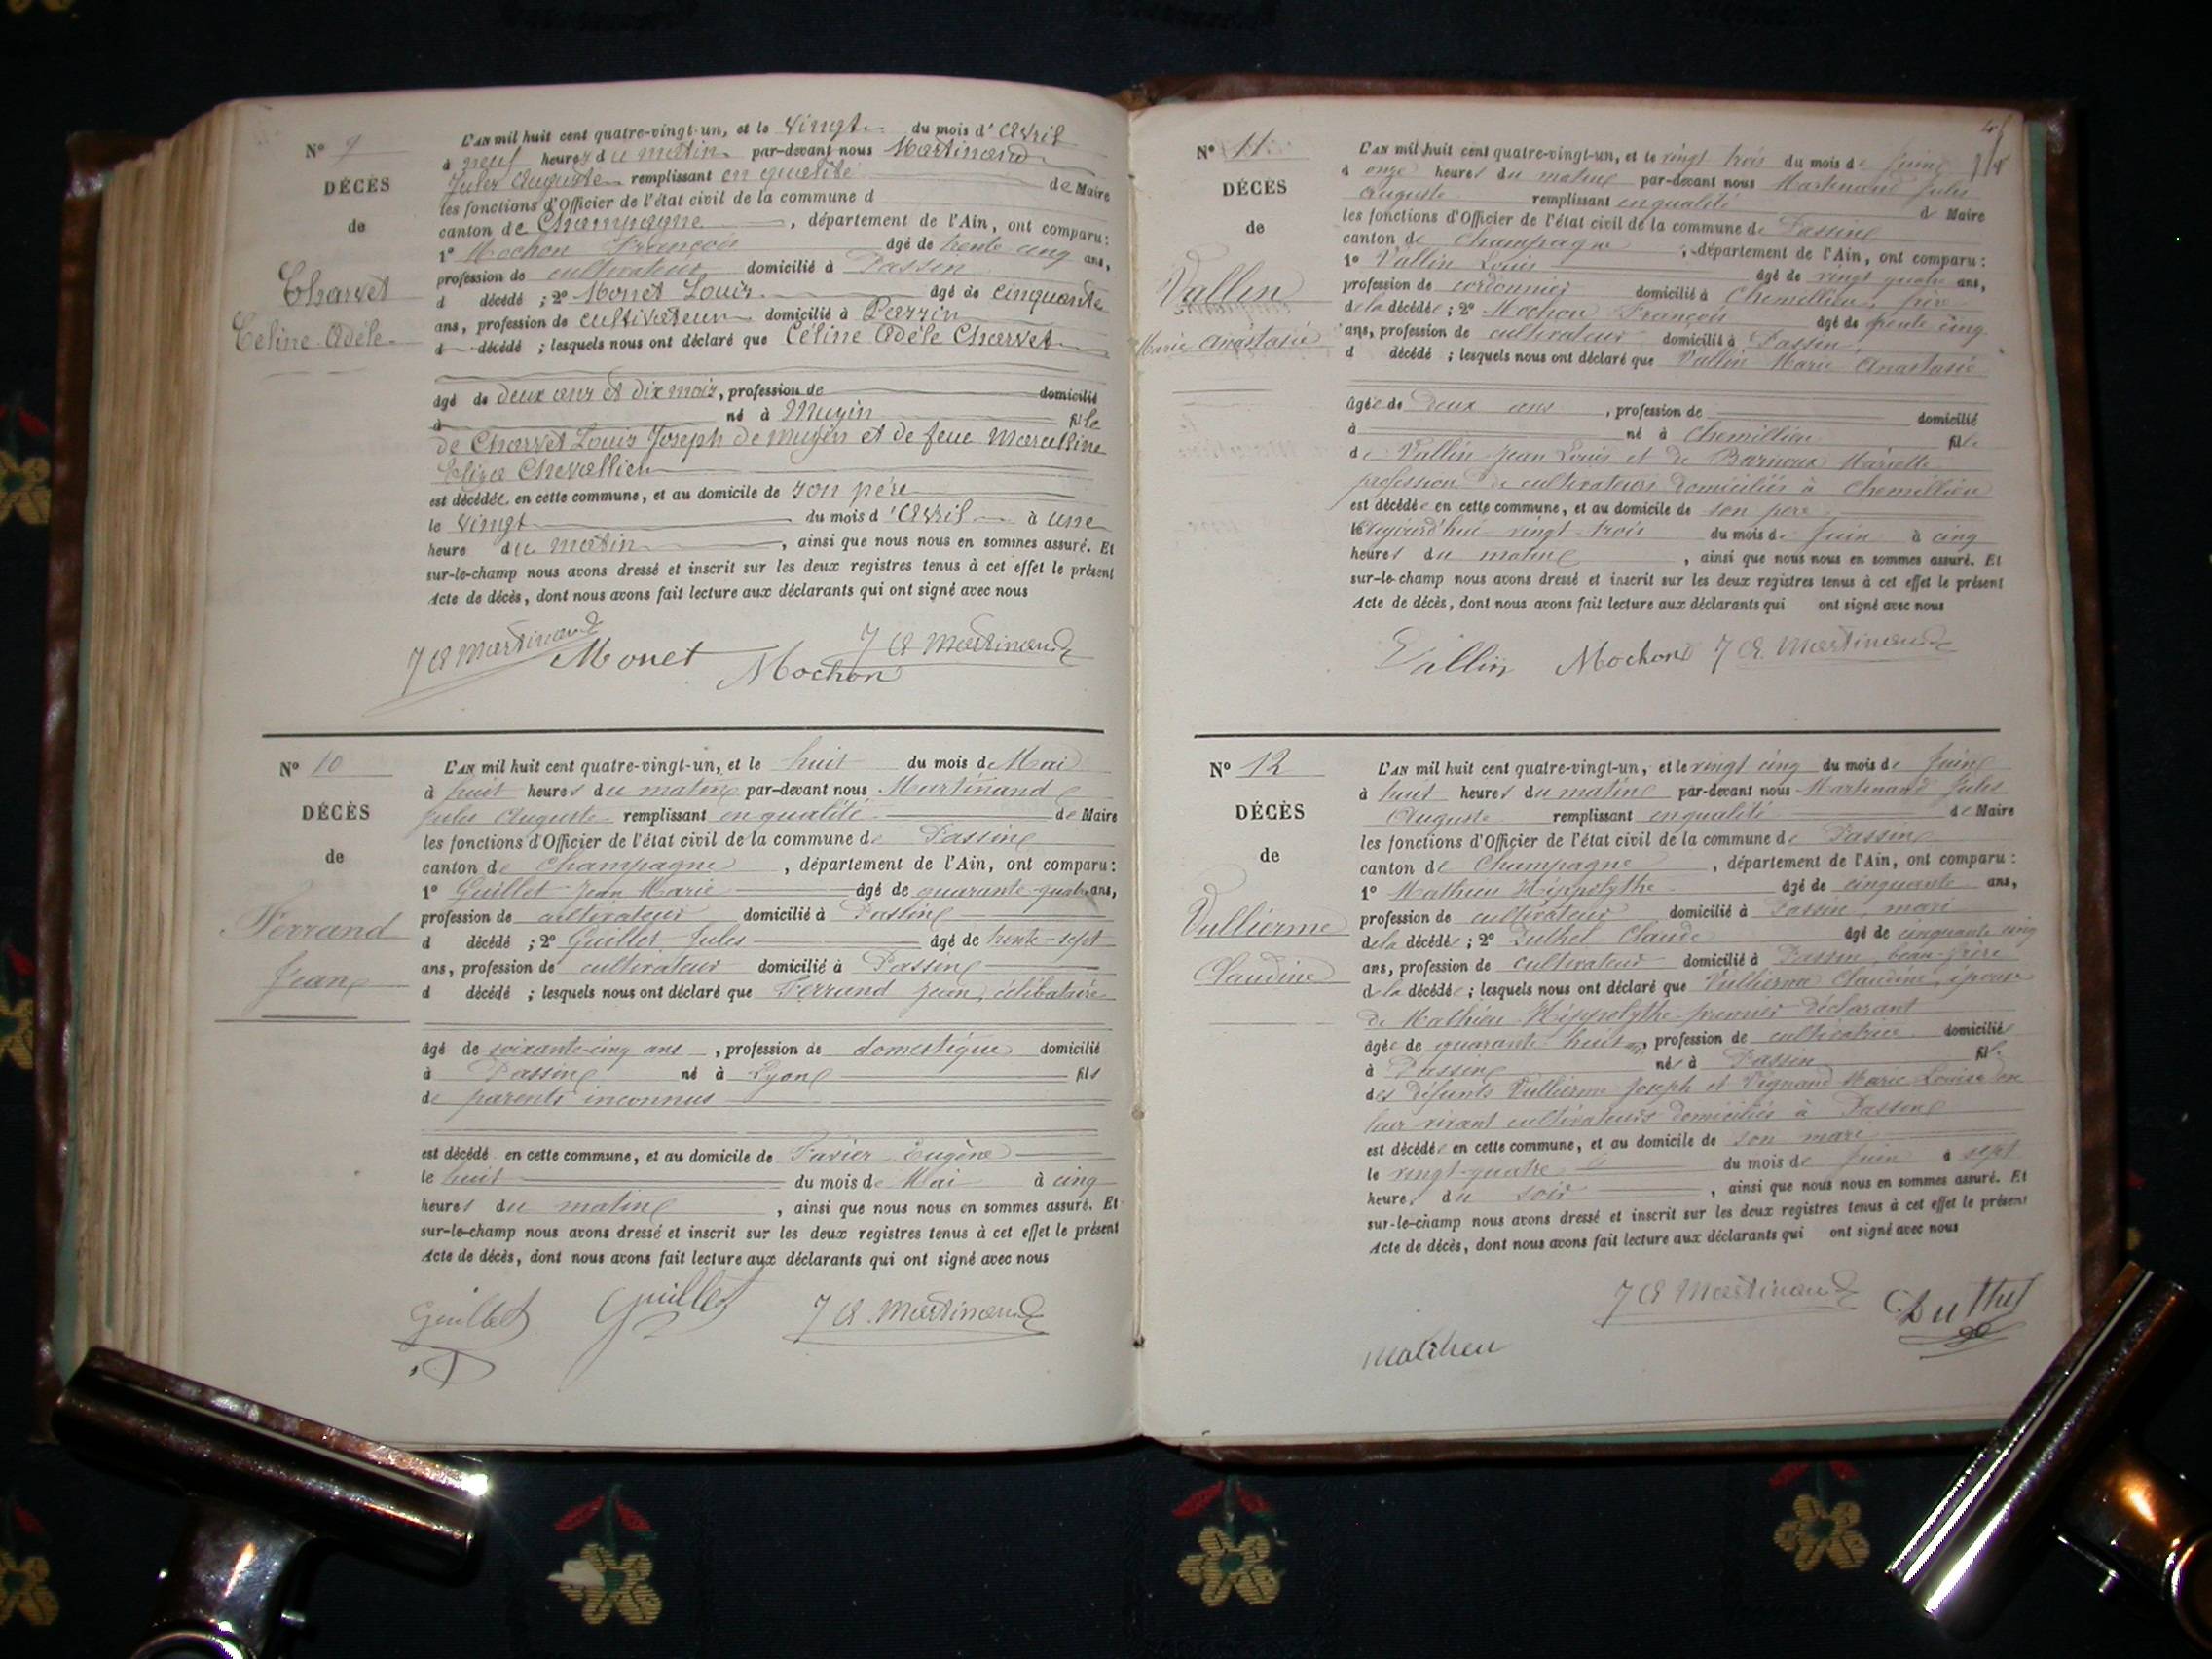 Nº 9
DÉCÈS
de
Charvet
Céline Adèle
L'AN mil huit cent quatre-vingt-un, et le vingt du mois d'Avril
à neuf heures du matin par-devant nous Martinand
Jules Auguste remplissant en qualité de Maire
les fonctions d'Officier de l'état civil de la commune d
canton de Champagne, département de l'Ain, ont comparu:
1º Mochon François âgé de trente cinq ans,
profession de cultivateur domicilié à Passin
d décédé ; 2º Monet Louis âgé de cinquante
ans, profession de cultivateur domicilié à Passin
d décédé ; lesquels nous ont déclaré que Céline Adèle Charvet
âgé de deux ans et dix mois, profession de domicilié
à né à Muyin fille
de Charvet Louis Joseph de Muyin et de feue Marcelline
Eliza Chevallier
est décédée en cette commune, et au domicile de son père
le vingt du mois d'Avril à une
heure du matin, ainsi que nous nous en sommes assuré. Et
sur-le-champ nous avons dressé et inscrit sur les deux registres tenus à cet effet le présent
Acte de décès, dont nous avons fait lecture aux déclarants qui ont signé avec nous
J A Martinand Monet Mochon J A Martinand
Nº 10
DÉCÈS
de
Ferrand
Jean
L'AN mil huit cent quatre-vingt-un, et le huit du mois de Mai
à huit heures du matin par-devant nous Martinand
Jules Auguste remplissant en qualité de Maire
les fonctions d'Officier de l'état civil de la commune de Passin
canton de Champagne, département de l'Ain, ont comparu:
1º Guillet Jean Marie âgé de quarante-quatre ans,
profession de cultivateur domicilié à Passin
d décédé ; 2º Guillet Jules âgé de trente-sept
ans, profession de cultivateur domicilié à Passin
d décédé ; lesquels nous ont déclaré que Ferrand Jean, célibataire
âgé de soixante-cinq ans, profession de domestique domicilié
à Passin né à Lyon fils
de parents inconnus
est décédé en cette commune, et au domicile de Savier Eugène
le huit du mois de Mai à cinq
heures du matin, ainsi que nous nous en sommes assuré. Et
sur-le-champ nous avons dressé et inscrit sur les deux registres tenus à cet effet le présent
Acte de décès, dont nous avons fait lecture aux déclarants qui ont signé avec nous
Guillet Guillet J A Martinand
Nº 11
DÉCÈS
de
Vallin
Marie Anastasie
L'AN mil huit cent quatre-vingt-un, et le vingt trois du mois de Juin
à onze heures du matin par-devant nous Martinand Jules
Auguste remplissant en qualité de Maire
les fonctions d'Officier de l'état civil de la commune de Passin
canton de Champagne, département de l'Ain, ont comparu:
1º Vallin Louis âgé de vingt quatre ans,
profession de cordonnier domicilié à Chemillieu, frère
de la décédé ; 2º Mochon François âgé de trente cinq
ans, profession de cultivateur domicilié à Passin
d décédé ; lesquels nous ont déclaré que Vallin Marie Anastasie
âgée de deux ans, profession de domicilié
à né à Chemillieu fille
de Vallin Jean Louis et de Barnoux Mariette
profession de cultivateurs domiciliés à Chemillieu
est décédée en cette commune, et au domicile de son père
le aujourd'hui vingt-trois du mois de Juin à cinq
heures du matin, ainsi que nous nous en sommes assuré. Et
sur-le-champ nous avons dressé et inscrit sur les deux registres tenus à cet effet le présent
Acte de décès, dont nous avons fait lecture aux déclarants qui ont signé avec nous
Vallin Mochon J A Martinand
Nº 12
DÉCÈS
de
Vullierme
Claudine
L'AN mil huit cent quatre-vingt-un, et le vingt cinq du mois de Juin
à huit heures du matin par-devant nous Martinand Jules
Auguste remplissant en qualité de Maire
les fonctions d'Officier de l'état civil de la commune de Passin
canton de Champagne, département de l'Ain, ont comparu:
1º Mathieu Hippolythe âgé de cinquante ans,
profession de cultivateur domicilié à Passin, mari
de la décédée ; 2º Duthel Claude âgé de cinquante cinq
ans, profession de cultivateur domicilié à Passin, beau-frère
de la décédée ; lesquels nous ont déclaré que Vullierme Claudine, épouse
de Mathieu Hippolythe premier déclarant
âgée de quarante huit ans, profession de cultivatrice domiciliée
à Passin née à Passin fille
des défunts Vullierme Joseph et Vignand Marie Louise en
leur vivant cultivateurs domiciliés à Passin
est décédée en cette commune, et au domicile de son mari
le vingt-quatre du mois de Juin à sept
heures du soir, ainsi que nous nous en sommes assuré. Et
sur-le-champ nous avons dressé et inscrit sur les deux registres tenus à cet effet le présent
Acte de décès, dont nous avons fait lecture aux déclarants qui ont signé avec nous
J A Martinand C. Duthel
Mathieu